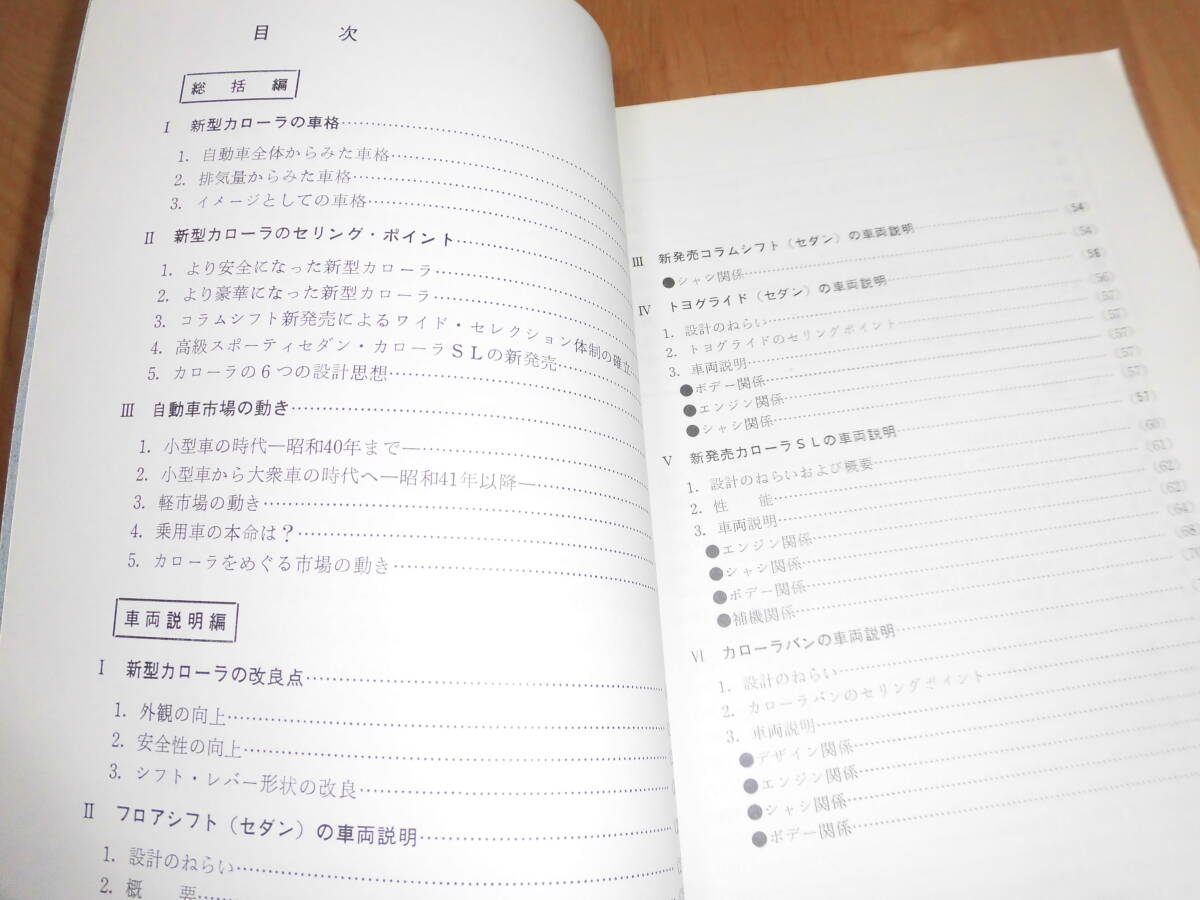 目　次
総括編
Ⅰ 新型カローラの車格
1. 自動車全体からみた車格
2. 排気量からみた車格
3. イメージとしての車格
Ⅱ 新型カローラのセリング・ポイント
1. より安全になった新型カローラ
2. より豪華になった新型カローラ
3. コラムシフト新発売によるワイド・セレクション体制の確立
4. 高級スポーティセダン・カローラSLの新発売
5. カローラの6つの設計思想
Ⅲ 自動車市場の動き
1. 小型車の時代―昭和40年まで―
2. 小型車から大衆車の時代へ―昭和41年以降―
3. 軽市場の動き
4. 乗用車の本命は？
5. カローラをめぐる市場の動き
車両説明編
Ⅰ 新型カローラの改良点
1. 外観の向上
2. 安全性の向上
3. シフト・レバー形状の改良
Ⅱ フロアシフト（セダン）の車両説明
1. 設計のねらい
2. 概　要
Ⅲ 新発売コラムシフト（セダン）の車両説明 (54)
●シャシ関係 (54)
Ⅳ トヨグライド（セダン）の車両説明
1. 設計のねらい
2. トヨグライドのセリングポイント
3. 車両説明
●ボデー関係
●エンジン関係
●シャシ関係
Ⅴ 新発売カローラSLの車両説明
1. 設計のねらいおよび概要
2. 性　能
3. 車両説明
●エンジン関係
●シャシ関係
●ボデー関係
●補機関係
Ⅵ カローラバンの車両説明
1. 設計のねらい
2. カローラバンのセリングポイント
3. 車両説明
●デザイン関係
●エンジン関係
●シャシ関係
●ボデー関係